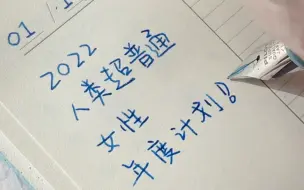 01 /
2022
人类超普通
女性
年度计划！